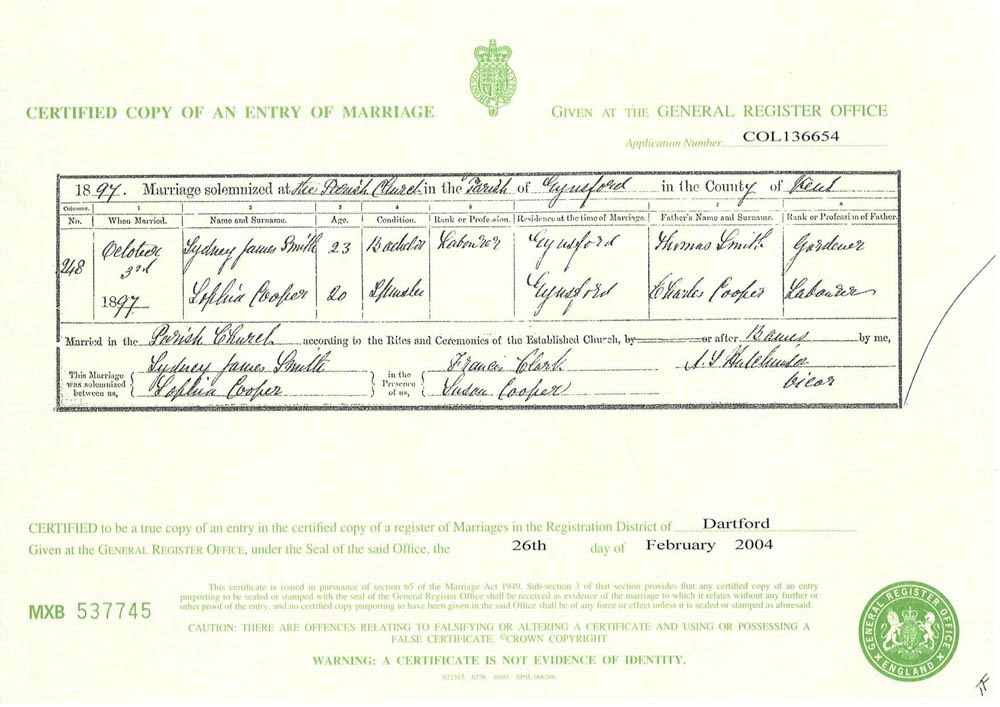 CERTIFIED COPY OF AN ENTRY OF MARRIAGE
GIVEN AT THE GENERAL REGISTER OFFICE
Application Number COL136654
1897. Marriage solemnized at the Parish Church in the Parish of Eynsford in the County of Kent
Columns. 1 2 3 4 5 6 7 8
No. When Married. Name and Surname. Age. Condition. Rank or Profession. Residence at the time of Marriage. Father's Name and Surname. Rank or Profession of Father.
248 October 3rd 1897
Sydney James Smith 23 Bachelor Labourer Eynsford Thomas Smith Gardener
Sophia Cooper 20 Spinster Eynsford Charles Cooper Labourer
Married in the Parish Church according to the Rites and Ceremonies of the Established Church, by or after Banns by me,
This Marriage was solemnized between us, { Sydney James Smith Sophia Cooper } in the Presence of us, { Francis Clark Susan Cooper } Vicar
CERTIFIED to be a true copy of an entry in the certified copy of a register of Marriages in the Registration District of Dartford
Given at the GENERAL REGISTER OFFICE, under the Seal of the said Office, the 26th day of February 2004
This certificate is issued in pursuance of section 65 of the Marriage Act 1949. Sub-section 3 of that section provides that any certified copy of an entry
purporting to be sealed or stamped with the seal of the General Register Office shall be received as evidence of the marriage to which it relates without any further or
other proof of the entry, and no certified copy purporting to have been given in the said Office shall be of any force or effect unless it is sealed or stamped as aforesaid.
MXB 537745
CAUTION: THERE ARE OFFENCES RELATING TO FALSIFYING OR ALTERING A CERTIFICATE AND USING OR POSSESSING A
FALSE CERTIFICATE. ©CROWN COPYRIGHT
WARNING: A CERTIFICATE IS NOT EVIDENCE OF IDENTITY.
GENERAL REGISTER OFFICE
ENGLAND